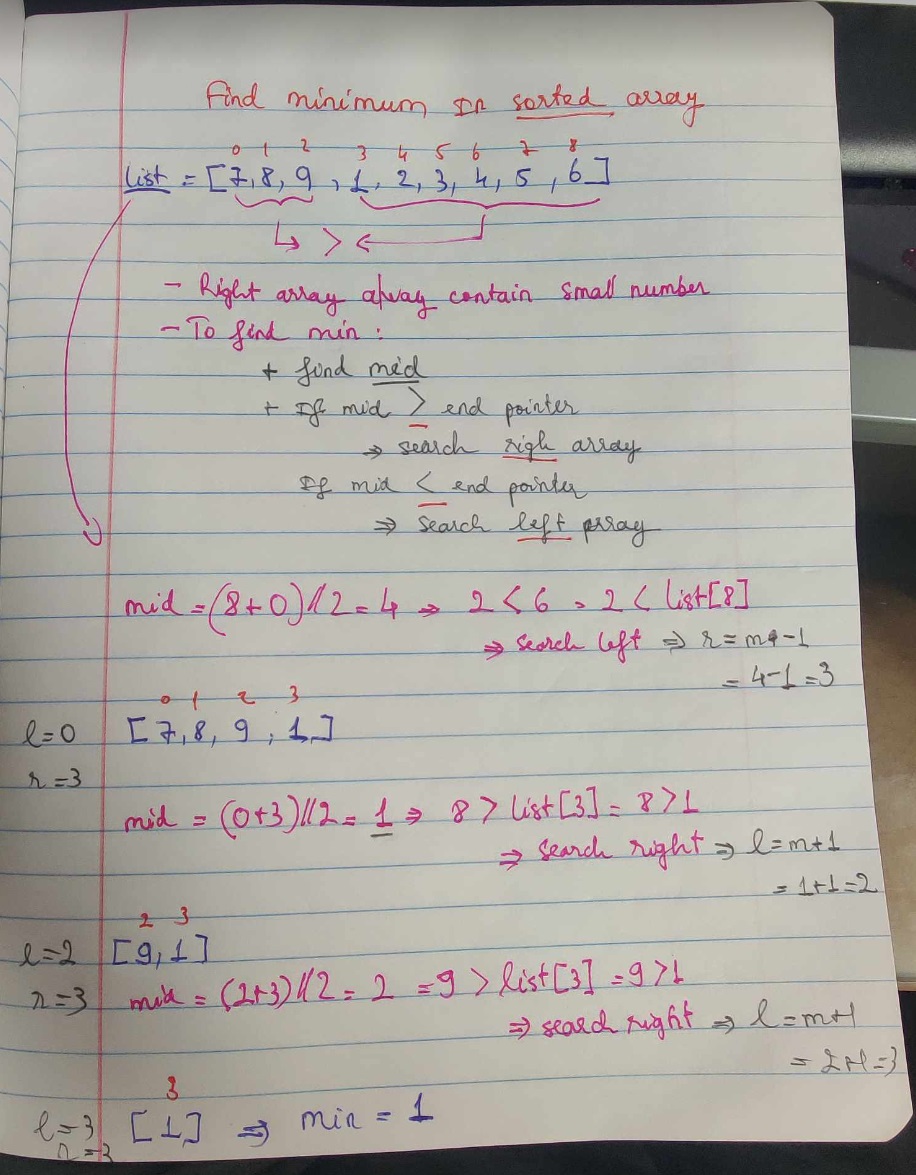 Find minimum In sorted array
0 1 2 3 4 5 6 7 8
list = [7, 8, 9, 1, 2, 3, 4, 5, 6]
↳ > ←
- Right array alway contain small number
- To find min :
+ find mid
+ If mid > end pointer
⇒ search righ array
If mid < end pointer
⇒ search left array
mid = (8+0)//2 = 4 ⇒ 2 < 6 = 2 < list[8]
⇒ search left ⇒ r = m-1
= 4-1 = 3
0 1 2 3
l=0 [7, 8, 9, 1,]
r=3
mid = (0+3)//2 = 1 ⇒ 8 > list[3] = 8 > 1
⇒ search right ⇒ l = m+1
= 1+1 = 2
2 3
l=2 [9, 1]
r=3 mid = (2+3)//2 = 2 = 9 > list[3] = 9 > 1
⇒ search right ⇒ l = m+1
= 2+1 = 3
3
l=3 [1,] ⇒ min = 1
r=3